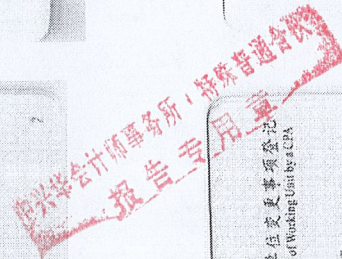 兴华会计师事务所（特殊普通合伙
报告专用章
位变更事项登记
of Working Unit by a CPA
2